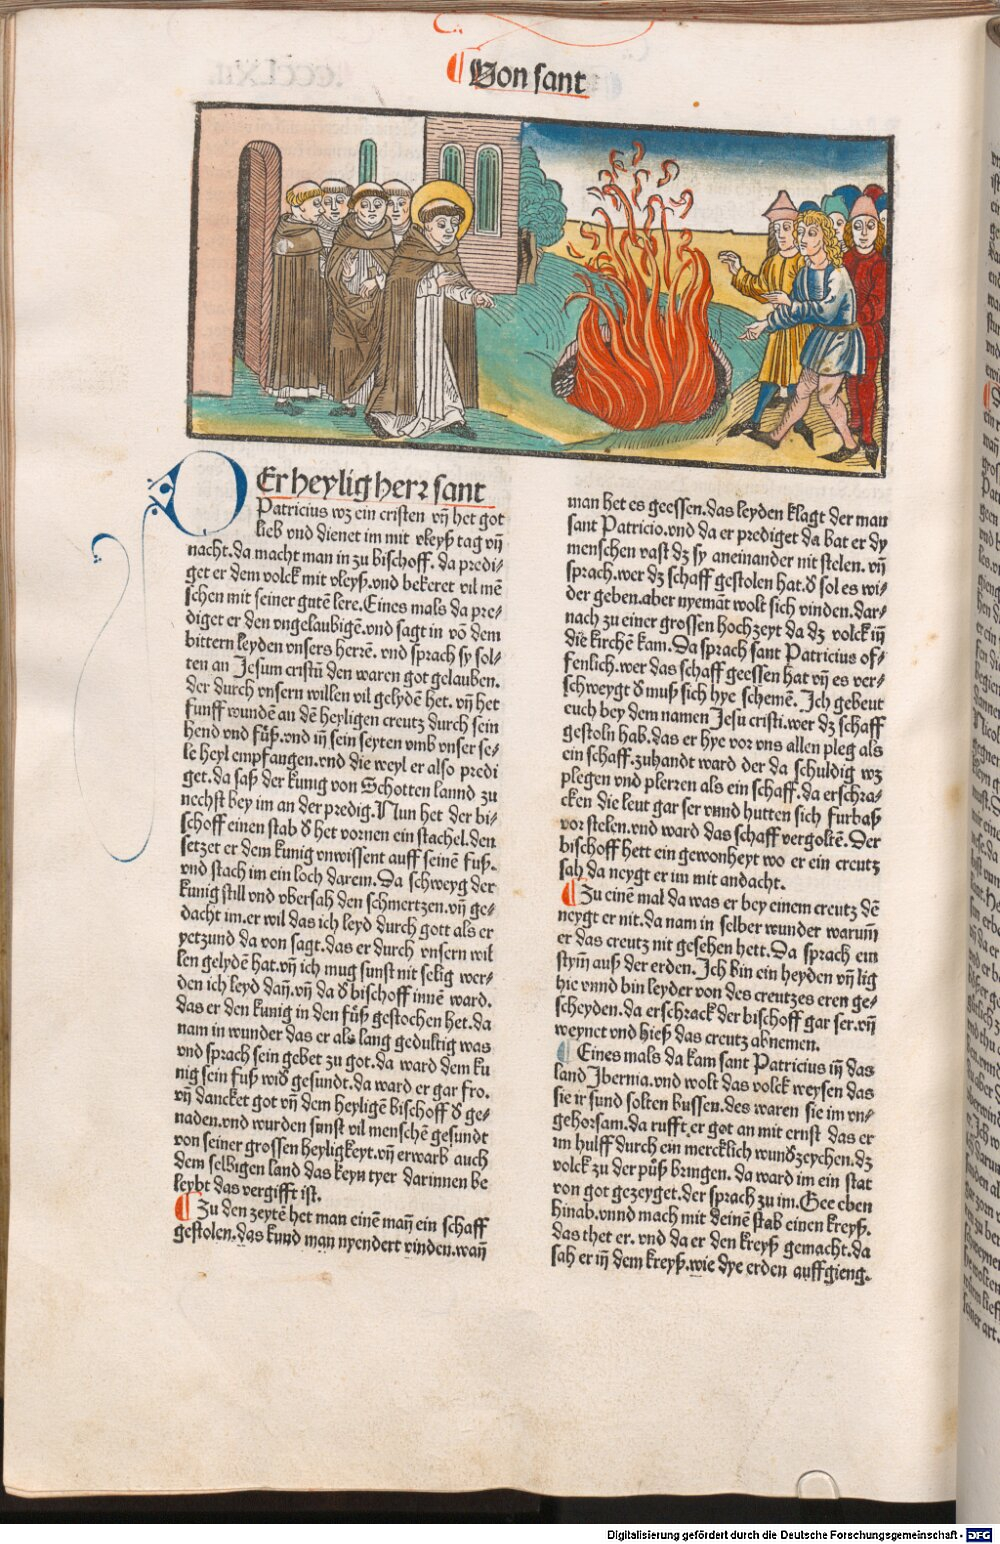 ¶ Von sant
DEr heylig herr sant
Patricius wz ein cristen vñ het got
lieb vnd dienet im mit vleyß tag vñ
nacht. da macht man in zu bischoff. da predi-
get er dem volck mit vleyß. vnd bekeret vil mē
schen mit seiner gutē lere. Eines mals da pre-
diget er den vngelaubigē. vnd sagt in vō dem
bittern leyden vnsers herrē. vnd sprach sy sol-
ten an Jesum cristū den waren got gelauben.
der durch vnsern willen vil gelydē het. vñ het
funff wundē an dē heyligen creutz durch sein
hend vnd füß. vnd iñ sein seyten vmb vnser se-
le heyl empfangen. vnd die weyl er also predi
get. da saß der kunig von Schotten lannd zu
nechst bey im an der predig. Nun het der bi-
schoff einen stab ď het vornen ein stachel. den
setzet er dem kunig vnwissent auff seinē fuß.
vnd stach im ein loch darein. Da schweyg der
kunig still vnd vbersah den schmertzen. vñ ge-
dacht im. er wil das ich leyd durch gott als er
yetzund da von sagt. das er durch vnsern wil
len gelydē hat. vñ ich mug sunst nit selig wer-
den ich leyd dañ. vñ da ď bischoff innē ward.
das er den kunig in den füß gestochen het. da
nam in wunder das er als lang gedultig was
vnd sprach sein gebet zu got. da ward dem ku
nig sein fuß wiď gesundt. da ward er gar fro.
vñ dancket got vñ dem heyligē bischoff ď ge-
naden. vnd wurden sunst vil menschē gesundt
von seiner grossen heyligkeyt. vñ erwarb auch
dem selbigen land das keyn tyer darinnen be
leybt das vergifft ist.
¶ Zu den zeytē het man einē mañ ein schaff
gestolen. das kund man nyendert vinden. wañ
man het es geessen. das leyden klagt der man
sant Patricio. vnd da er prediget da bat er dy
menschen vast dz sy aneinander nit stelen. vñ
sprach. wer dz schaff gestolen hat. ď sol es wi-
der geben. aber nyemāt wolt sich vinden. dar-
nach zu einer grossen hochzeyt da dz volck iñ
die kirchē kam. Da sprach sant Patricius of-
fenlich. wer das schaff geessen hat vñ es ver-
schweygt ď muß sich hye schemē. Ich gebeut
euch bey dem namen Jesu cristi. wer dz schaff
gestoln hab. das er hye vor vns allen pleg als
ein schaff. zuhandt ward der da schuldig wz
plegen vnd plerren als ein schaff. da erschra-
cken die leut gar ser vnnd hutten sich furbaß
vor stelen. vnd ward das schaff vergoltē. Der
bischoff hett ein gewonheyt wo er ein creutz
sah da neygt er im mit andacht.
¶ Zu einē mal da was er bey einem creutz dē
neygt er nit. da nam in selber wunder warum̄
er das creutz nit gesehen hett. Da sprach ein
stym̄ auß der erden. Ich bin ein heyden vñ lig
hie vnnd bin leyder von des creutzes eren ge-
scheyden. da erschrack der bischoff gar ser. vñ
weynet vnd hieß das creutz abnemen.
¶ Eines mals da kam sant Patricius iñ das
land Jbernia. vnd wolt das volck weysen das
sie ir sund solten bussen. des waren sie im vn-
gehorsam. da rufft er got an mit ernst das er
im hulff durch ein mercklich wunďzeychen. dz
volck zu der půß bringen. da ward im ein stat
von got gezeyget. der sprach zu im. Gee eben
hinab. vnnd mach mit deinē stab einen kreyß.
das thet er. vnd da er den kreyß gemacht. da
sah er iñ dem kreyß. wie dye erden auffgieng.
Digitalisierung gefördert durch die Deutsche Forschungsgemeinschaft - DFG